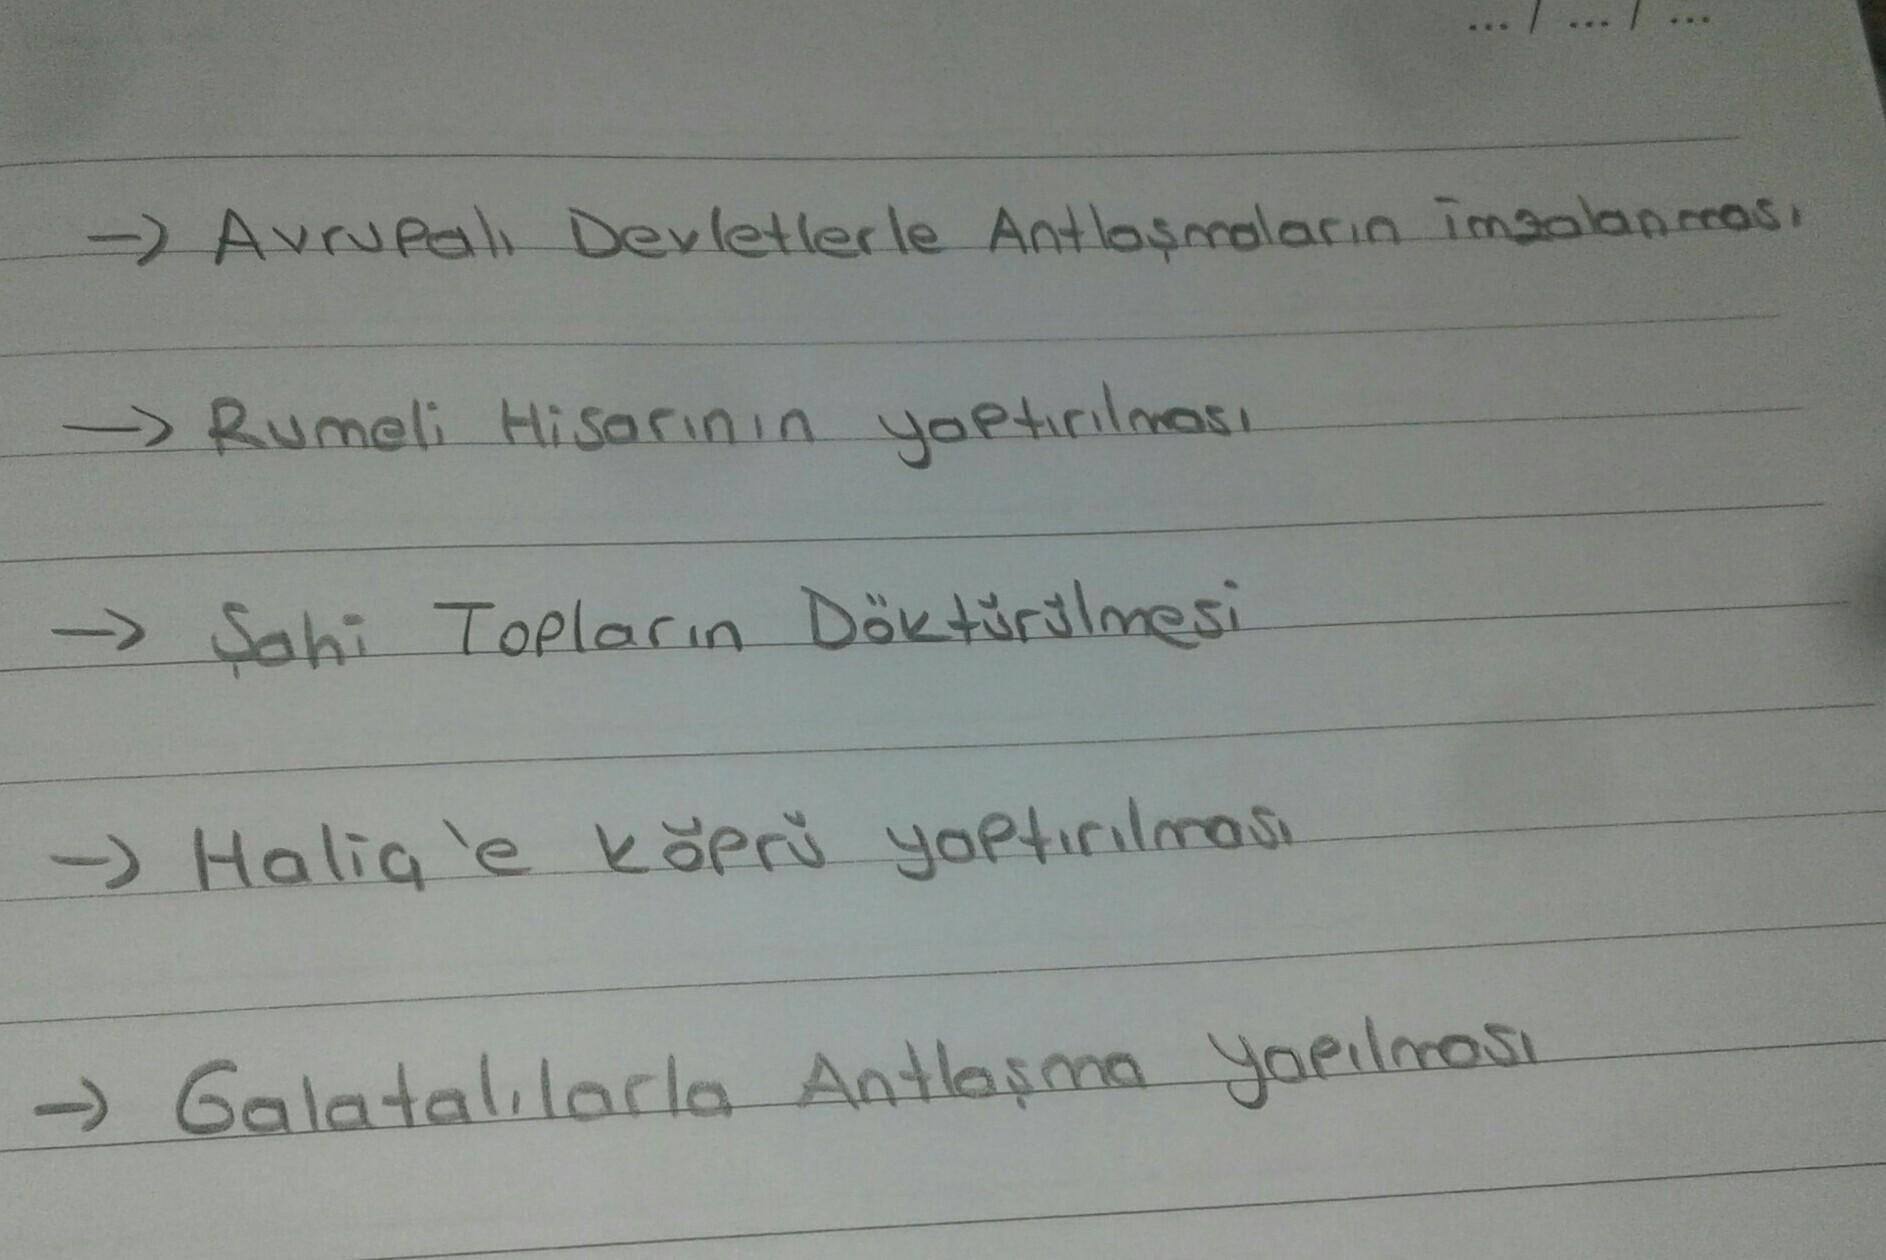 ... / ... / ...
→ Avrupalı Devletlerle Antlaşmaların İmzalanması
→ Rumeli Hisarının yaptırılması
→ Şahi Topların Döktürülmesi
→ Haliç'e köprü yaptırılması
→ Galatalılarla Antlaşma yapılması